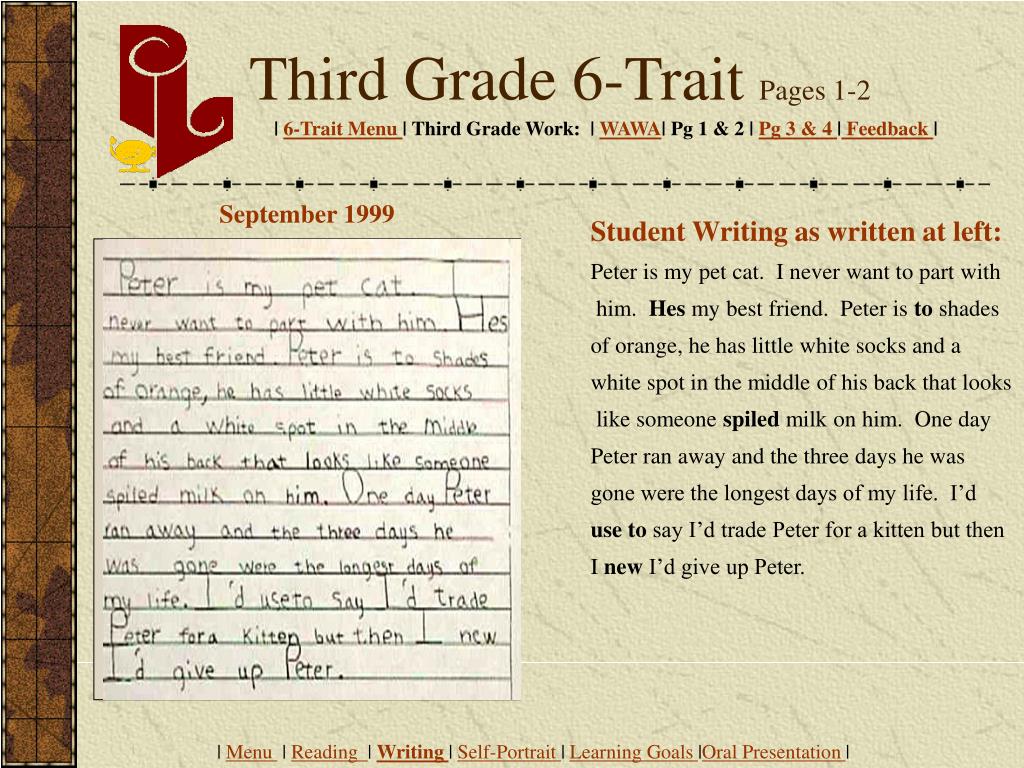 Third Grade 6-Trait Pages 1-2
| 6-Trait Menu | Third Grade Work: | WAWA| Pg 1 & 2 | Pg 3 & 4 | Feedback |
September 1999
Peter is my pet cat. I
never want to part with him. Hes
my best friend. Peter is to shades
of orange, he has little white socks
and a white spot in the middle
of his back that looks like someone
spiled milk on him. One day Peter
ran away and the three days he
was gone were the longest days of
my life. I'd useto say I'd trade
Peter for a kitten but then I new
I'd give up Peter.
Student Writing as written at left:
Peter is my pet cat. I never want to part with
him. Hes my best friend. Peter is to shades
of orange, he has little white socks and a
white spot in the middle of his back that looks
like someone spiled milk on him. One day
Peter ran away and the three days he was
gone were the longest days of my life. I’d
use to say I’d trade Peter for a kitten but then
I new I’d give up Peter.
| Menu | Reading | Writing | Self-Portrait | Learning Goals |Oral Presentation |